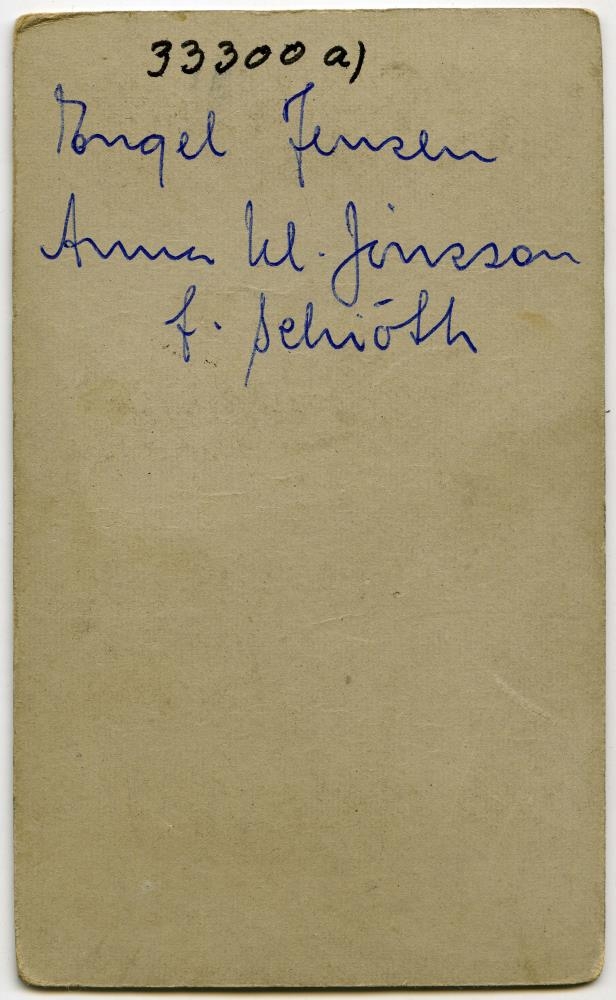 33300 a)
Engel Jensen
Anna Kl. Jónsson
f. Schiöth